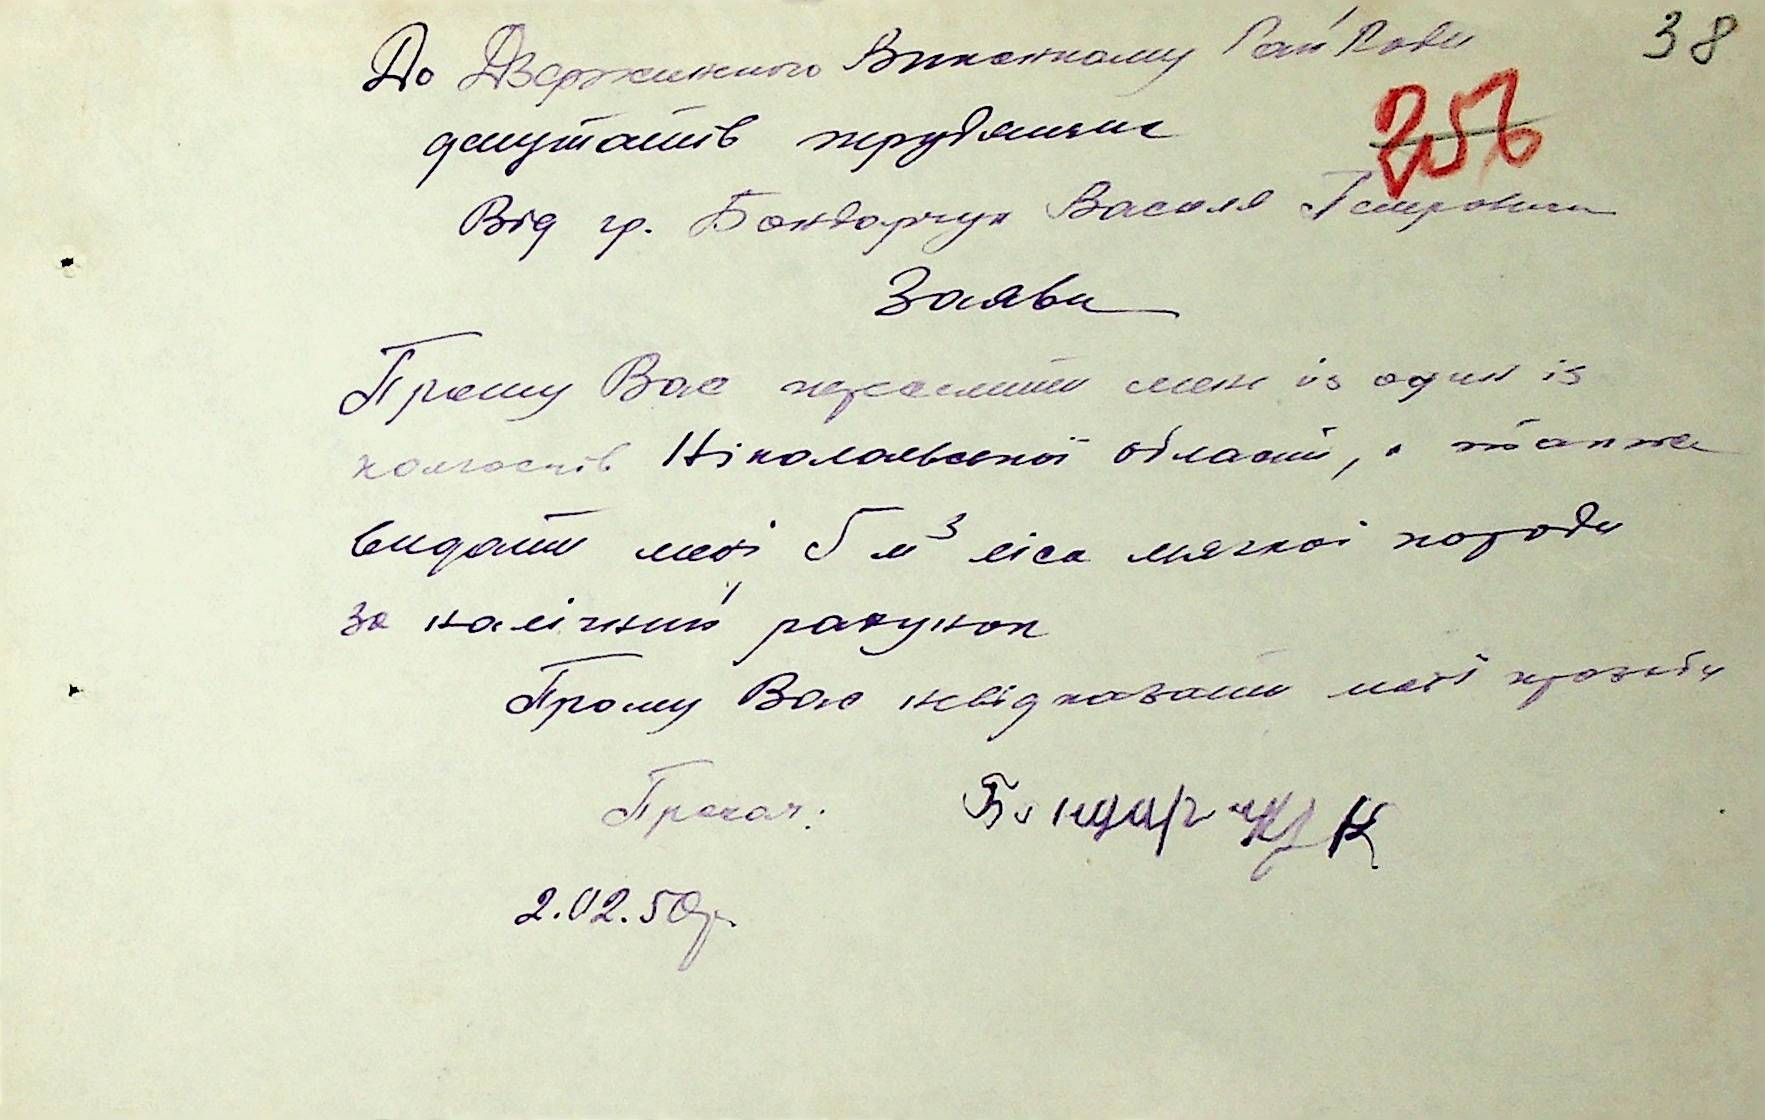 38
До Дзержинского Виконкому Рай Ради
депутатів трудящихс
256
Від гр. Бондарчук Василя Петровича
Заява
Прошу Вас переселити мене із один із
колгоспів Ніколаєвської області, а также
видати мені 5 м³ ліса мягкої породи
за налічний рахунок
Прошу Вас невідказати моєї прозьби
Прохач: Бондарчук
2.02.50р.